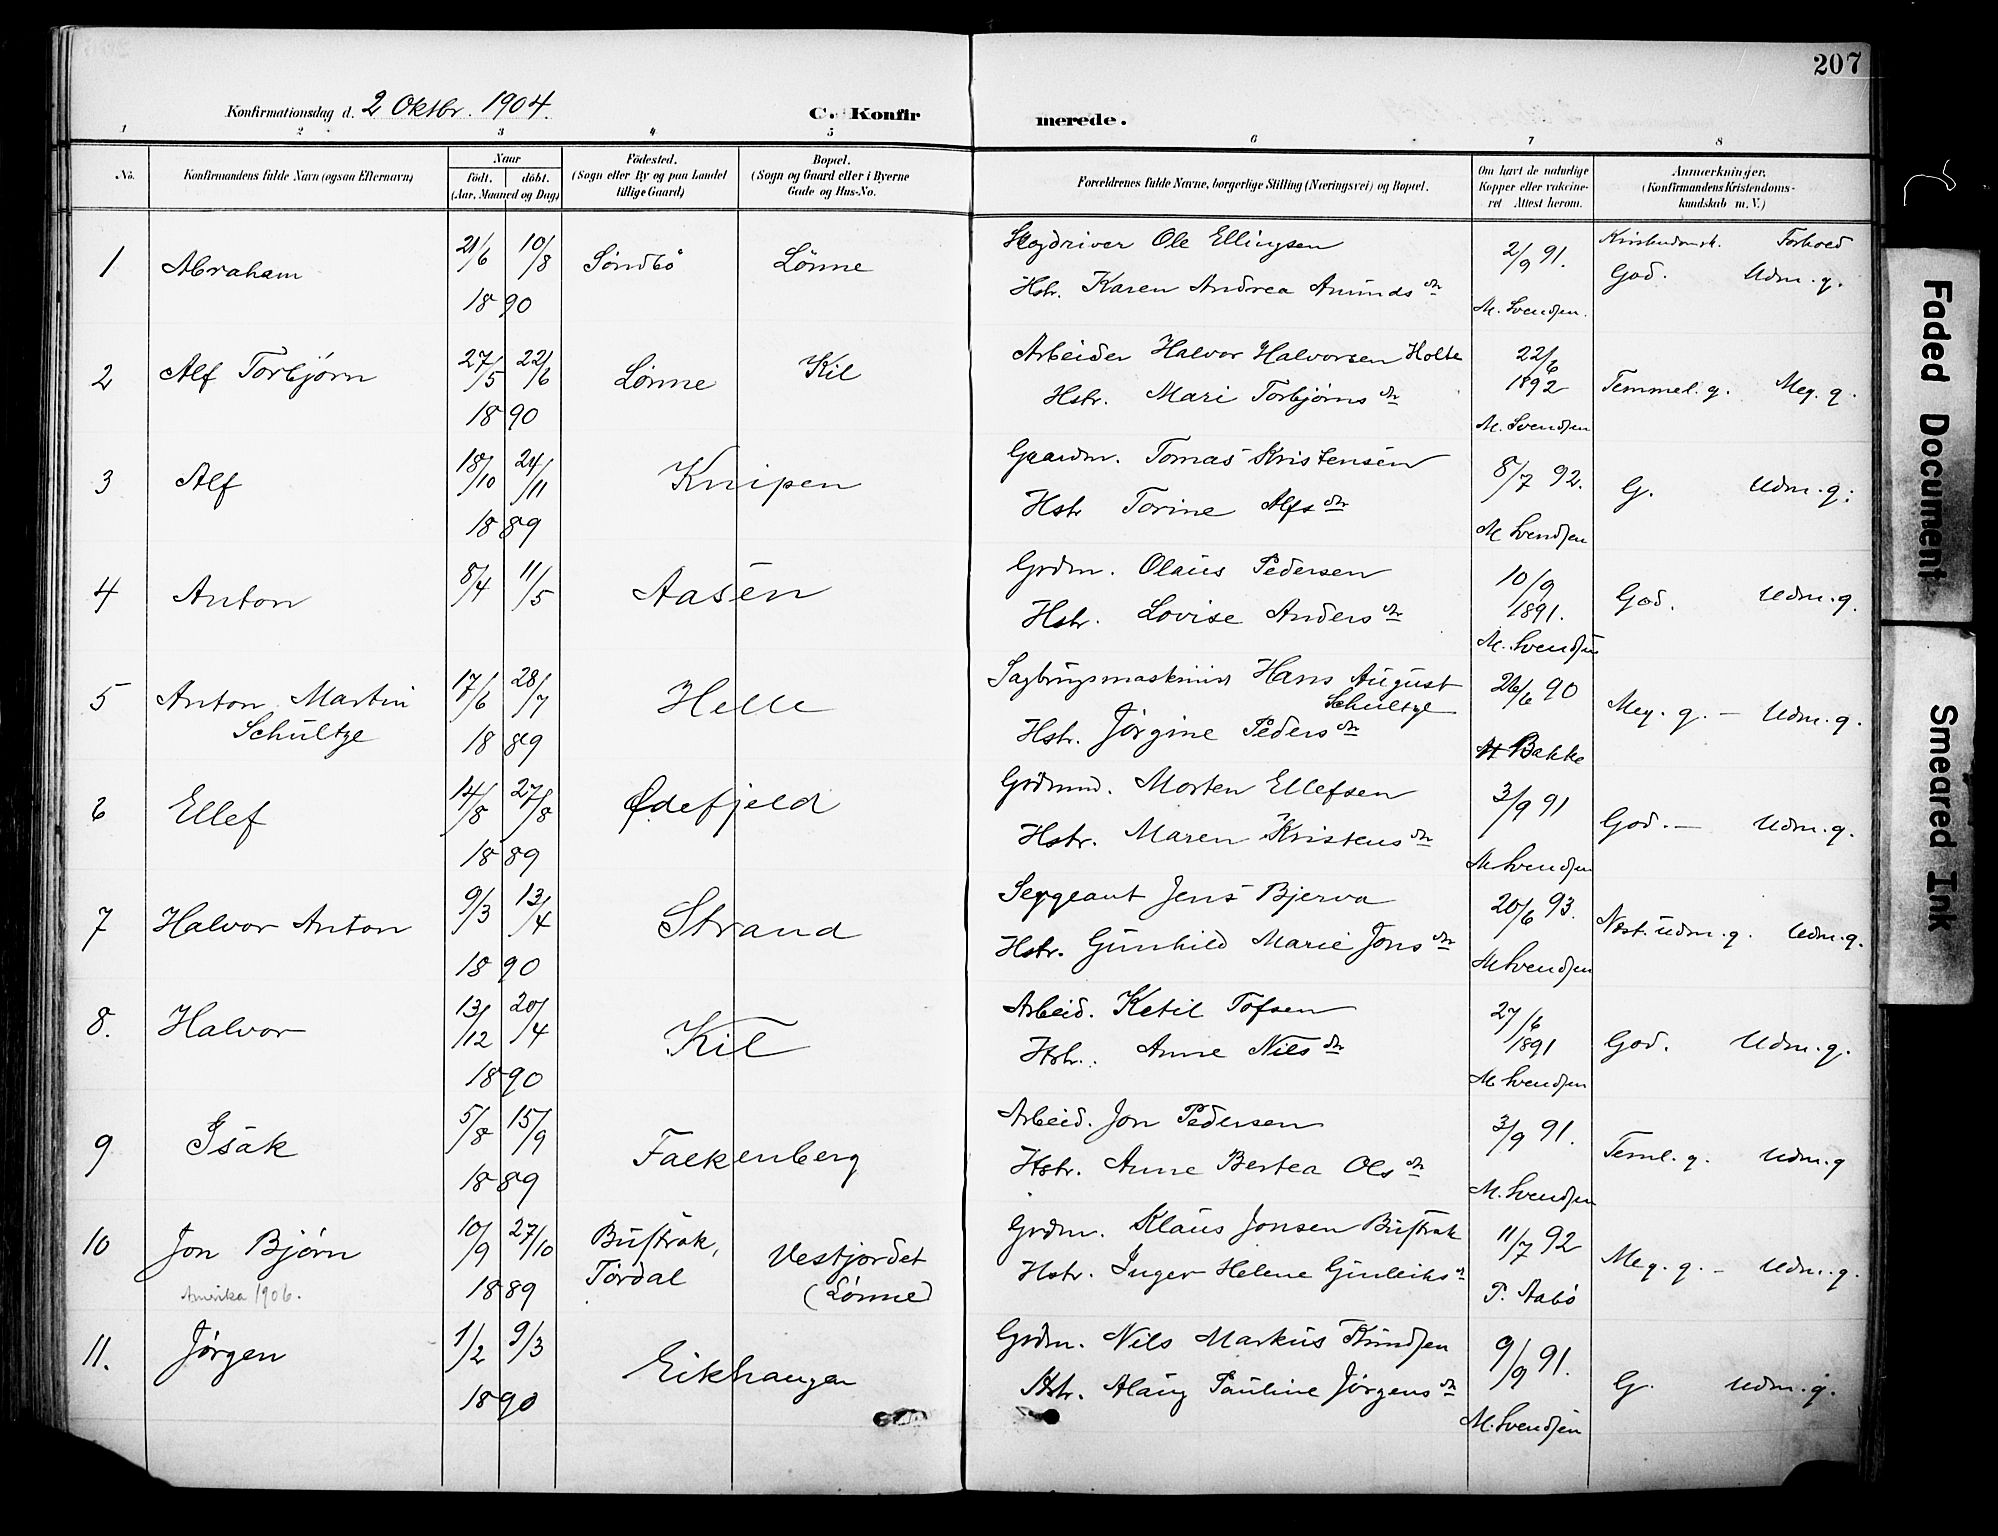 207
Konfirmationsdag d. 2 Oktbr. 1904.
C. Konfirmerede.
1 2 3 4 5 6 7 8
No.
Konfirmandens fulde Navn (ogsaa Efternavn)
Naar
født. døbt.
(Aar, Maaned og Dag)
Fødested.
(Sogn eller By og paa Landet
tillige Gaard)
Bopæl.
(Sogn og Gaard eller i Byerne
Gade og Hus-No.
Forældrenes fulde Navne, borgerlige Stilling (Næringsvei) og Bopæl.
Om havt de naturlige
Kopper eller vakcine-
ret Attest herom.
Anmærkninger,
(Konfirmandens Kristendoms-
kundskab m. V.)
1 Abraham 21/6 10/8 1890 Søndbø Lønne
Skogdriver Ole Ellingsen
Hstr. Karen Andrea Amundsdr
2/9 91. M. Svendsen.
Kristendomsk. Forhold
God. Udm. g.
2 Alf Torbjørn 27/5 22/6 1890 Lønne Kil
Arbeider Halvor Halvorsen Holte
Hstr. Mari Torbjørnsdr
22/6 1892 M. Svendsen
Temmel. g. Meg. g.
3 Alf 18/10 24/11 1889 Knipen
Gaardm. Tomas Kristensen
Hstr Torine Alfsdr
8/7 92. M Svendsen
G. Udm. g.
4 Anton 8/4 11/5 Aasen
Grdm. Olaus Pedersen
Hstr. Lovise Andersdr
10/9 1891. M. Svendsen
God. Udm. g.
5 Anton Martin
Schultze 17/6 28/7 1889 Helle
Sagbrugsmaskinist Hans August
Schultze
Hstr. Jørgine Pedersdr
26/6 90 Bakke
Meg. g. — Udm. g.
6 Ellef 14/8 27/8 1889 Ødefjeld
Grdmnd. Morten Ellefsen
Hstr. Maren Kristensdr
3/9 91 M Svendsen
God. — Udm. g.
7 Halvor Anton 9/3 13/4 1890 Strand
Sergeant Jens Bjerva
Hstr. Gunhild Marie Jonsdr
20/6 93. M Svendsen
Næst. udm. g. Udm. g.
8. Halvor 13/12 20/4 1890 Kil
Arbeid. Ketil Tofsen
Hstr. Anne Nilsdr
27/6 1891 M Svendsen
God. Udm. g.
9 Isak 5/8 15/9 1889 Falkenberg
Arbeid. Jon Pedersen
Hstr. Anne Bertea Olsdr
3/9 91. M. Svendsen
Teml. g. Udm. g
10 Jon Bjørn 10/9 27/10 1889
Amerika 1906.
Bustrak,
Tørdal
Vestjordet
(Lønne)
Grdm. Klaus Jonsen Bustrak
Hstr. Inger Helene Gunleiksdr
11/7 92 P. Aabø
Meg. g. — Udm. g.
11. Jørgen 1/2 9/3 1890 Eikhaugen
Grdm. Nils Markus Knudsen
Hstr. Alaug Pauline Jørgensdr
9/9 91. M. Svendsen
G. Udm. g.
Faded Document
Smeared Ink